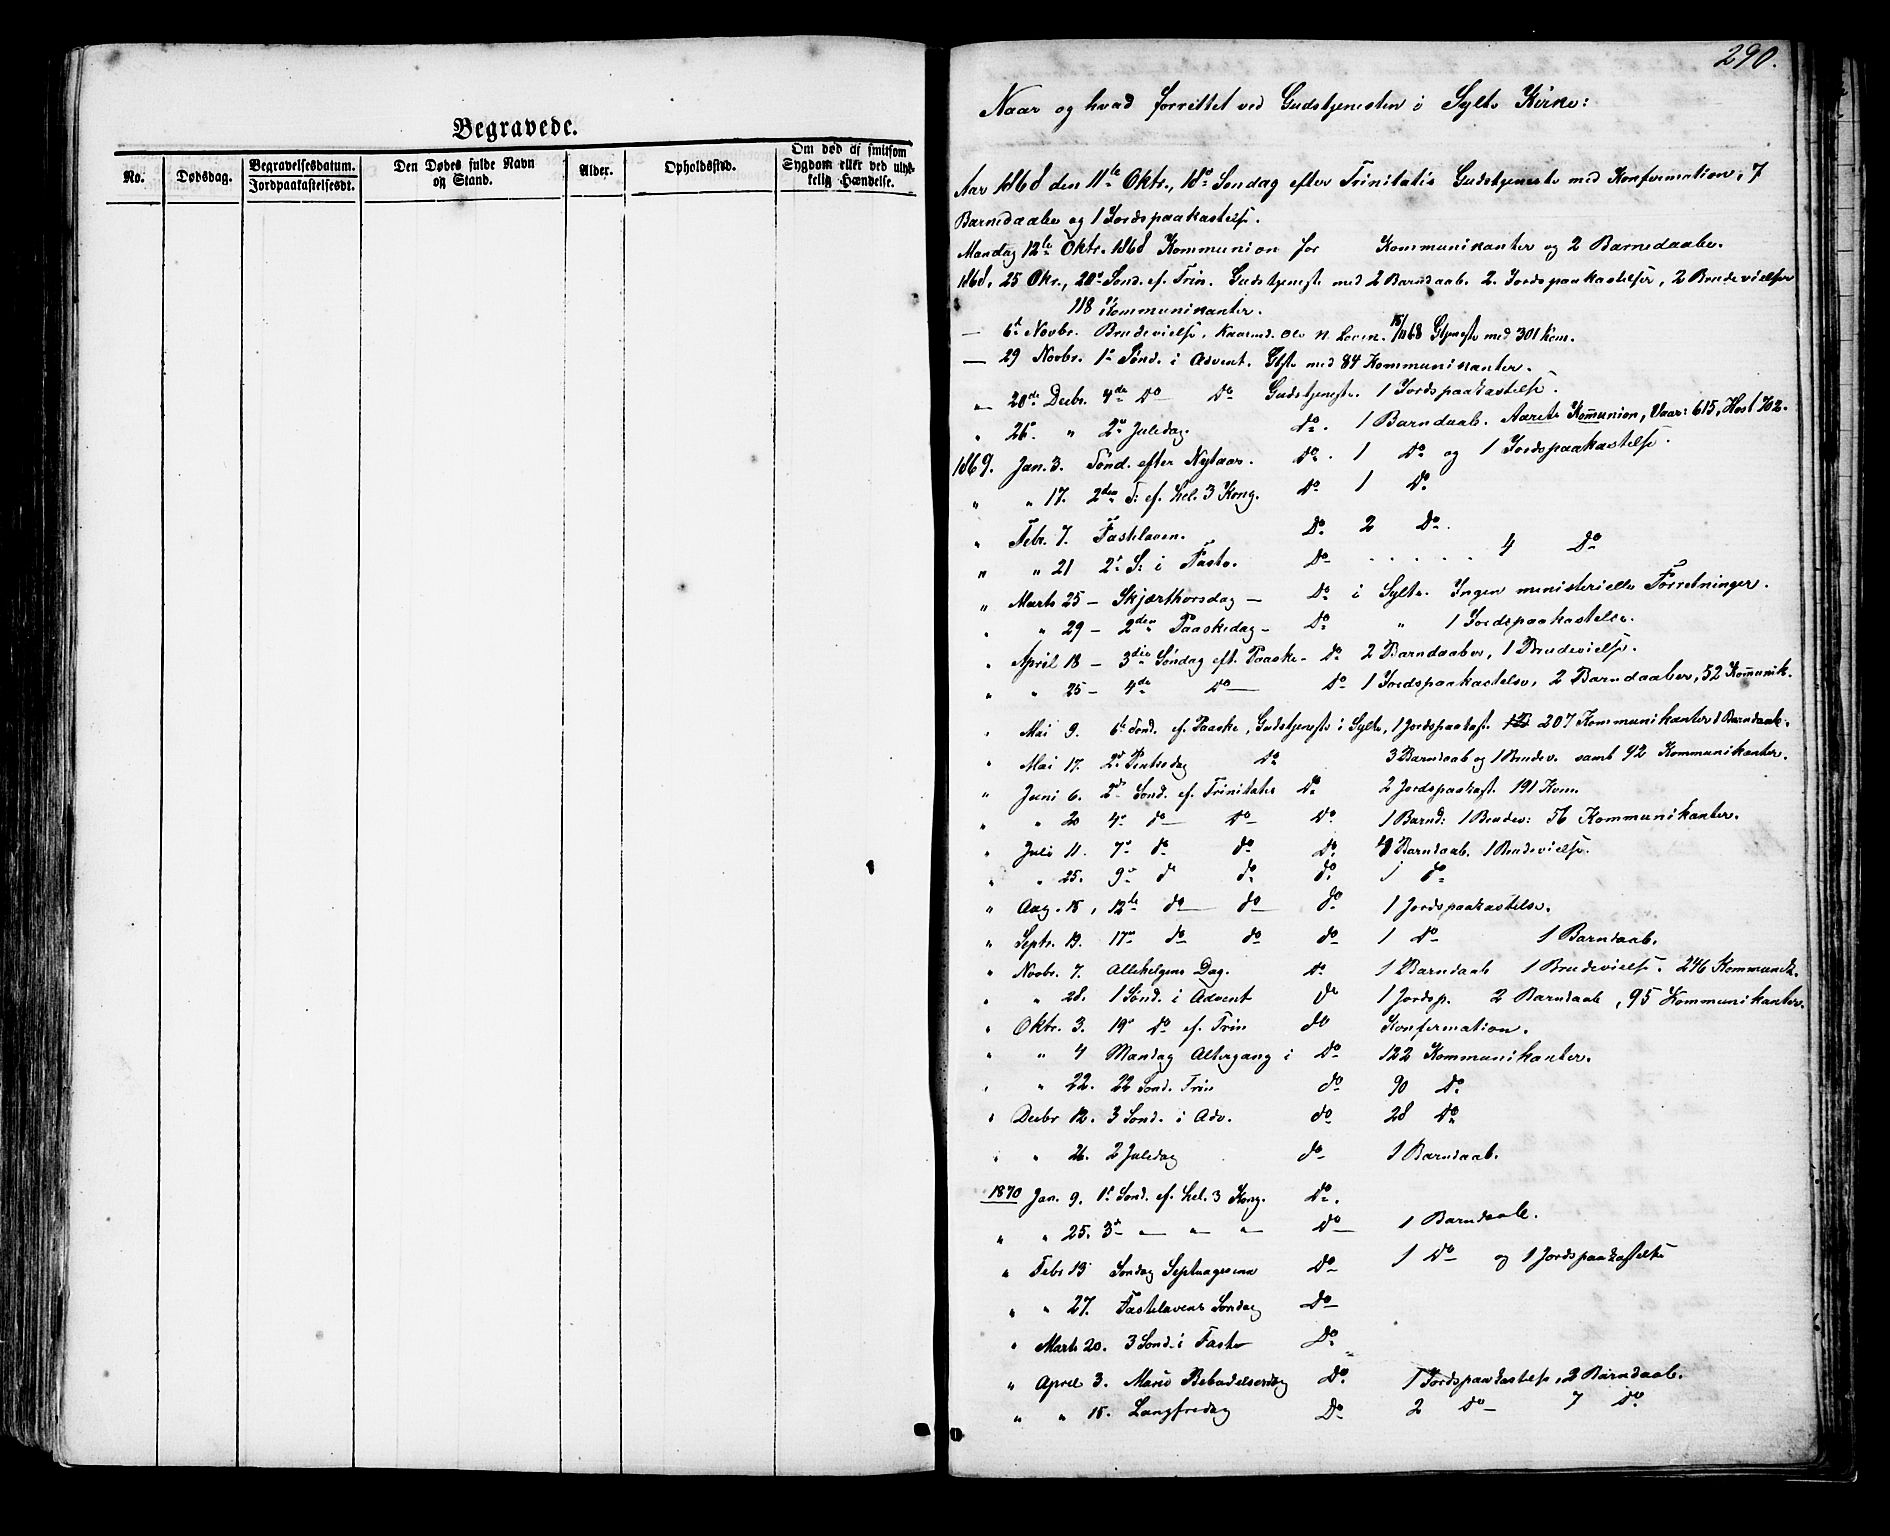 Begravede.
No.
Dødsdag.
Begravelsesdatum.
Jordpaakastelsesdt.
Den Dødes fulde Navn
og Stand.
Alder.
Opholdssted.
Om død af smitsom
Sygdom eller ved ulyk-
kelig Hændelse.
290.
Naar og hvad forrettet ved Gudstjenesten i Sylte Kirke:
Aar 1868 den 11te Oktr., 18de Søndag efter Trinitatis Gudstjeneste med Konfirmation, 7
Barnedaabe og 1 Jordspaakastelse.
Mandag 12te Oktr. 1868 Kommunion for Kommunikanter og 2 Barnedaabe.
1868, 25 Okr., 20de Sønd. ef. Trin. Gudstjeneste med 2 Barndaab. 2 Jordspaakastelser, 2 Brudevielser
118 Kommunikanter.
— 6te Novbr. Brudevielse, Ole N. 15/11 68 Gtjeneste med 301 Kom.
— 29 Novbr. 1ste Sønd. i Advent. Gtjste med 84 Kommunikanter.
— 20de Decbr. 4de Do Do Gudstjeneste. 1 Jordspaakastelse.
" 26de " 2den Juledag. Do. 1 Barndaab. Aarets Kommunion, Vaar: 615, Høst 702.
1869. Jan. 3. Sønd. efter Nytaar. Do. 1 Do og 1 Jordspaakastelse.
" " 17. 2den S: ef. Hel. 3 Kong. Do 1 Do.
" Febr. 7. Fastelaven. Do 2 Do.
" " 21 2den S: i Faste. Do . . . . . 4 Do
" Marts 25 — Skjærthorsdag — Do i Sylte. Ingen ministerielle Forretninger.
" " 29 — 2den Paaskedag — Do " 1 Jordspaakastelse.
" April 18 — 3die Søndag eft. Paaske — Do 2 Barndaaber, 1 Brudevielse.
" " 25 — 4de Do — Do 1 Jordspaakastelse, 2 Barndaaber, 52 Kommunik.
" Mai 9. 6te Sønd. ef. Paaske, Gudstjeneste i Sylte, 1 Jordspaakast. 207 Kommunikanter 1 Barndaab.
" Mai 17. 2den Pintsedag Do 3 Barndaab og 1 Brudev. samt 92 Kommunikanter.
" Juni 6. 2den Sønd. ef. Trinitatis Do 2 Jordspaakast. 191 Kom.
" " 20 4de do — Do — Do 1 Barnd: 1 Brudev: 56 Kommunikanter.
" Juli 11. 7de do do Do. Barndaab. 1 Brudevielse.
" " 25. 9de do do do. 1 do
" Aug. 15, 12te do — do — do 1 Jordspaakastelse.
" Septr. 19. 17de do do do 1 Do 1 Barndaab.
" Novbr. 7. Allehelgens Dag. Do 1 Barndaab 1 Brudevielse. 246 Kommunik.
" " 28. 1 Sønd. i Advent do 1 Jordsp. 2 Barndaab, 95 Kommunikanter.
" Oktr. 3. 19de Do ef. Trin do Konfirmation.
" " 4 Mandag Altergang i Do 122 Kommunikanter.
" " 22. 22 Sønd. Trin do 90 Do
" Decbr 12. 3 Sønd. i Adv. do 28 Do
" " 26. 2 Juledag do 1 Barndaab.
1870 Jan. 9. 1ste Sønd. ef. Hel. 3 Kong. Do.
" " 25. 3de — " — " — " Do 1 Barndaab.
" Febr 13 Søndag Septuagesima Do 1 Do og 1 Jordspaakastelse
" " 27. Fastelavens Søndag Do
" Marts 20. 3 Sønd. i Faste Do
" April 3. Mariæ Bebudelsesdag Do. 1 Jordspaakastelse, 2 Barndaab.
" " 15. Langfredag Do 2 Do 7 do